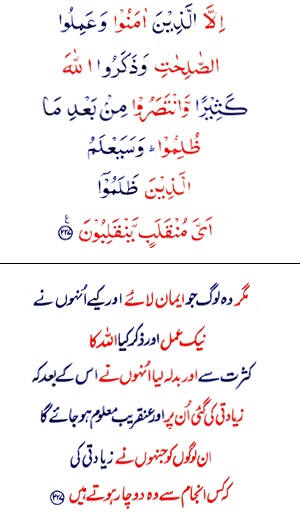 اِلَّا الَّذِيْنَ اٰمَنُوْا وَعَمِلُوا
الصّٰلِحٰتِ وَذَكَرُوا اللّٰهَ
كَثِيْرًا وَّانْتَصَرُوْا مِنْۢ بَعْدِ مَا
ظُلِمُوْا ؕ وَسَيَعْلَمُ
الَّذِيْنَ ظَلَمُوْۤا
اَىَّ مُنْقَلَبٍ يَّنْقَلِبُوْنَ ﴿۲۲۷﴾ ع
مگر وہ لوگ جو ایمان لائے اور کیے اُنہوں نے
نیک عمل اور ذکر کیا اللہ کا
کثرت سے اور بدلہ لیا اُنہوں نے اس کے بعد کہ
زیادتی کی گئی اُن پر اور عنقریب معلوم ہو جائے گا
ان لوگوں کو جنہوں نے زیادتی کی
کہ کس انجام سے وہ دوچار ہوتے ہیں ﴿۲۲۷﴾